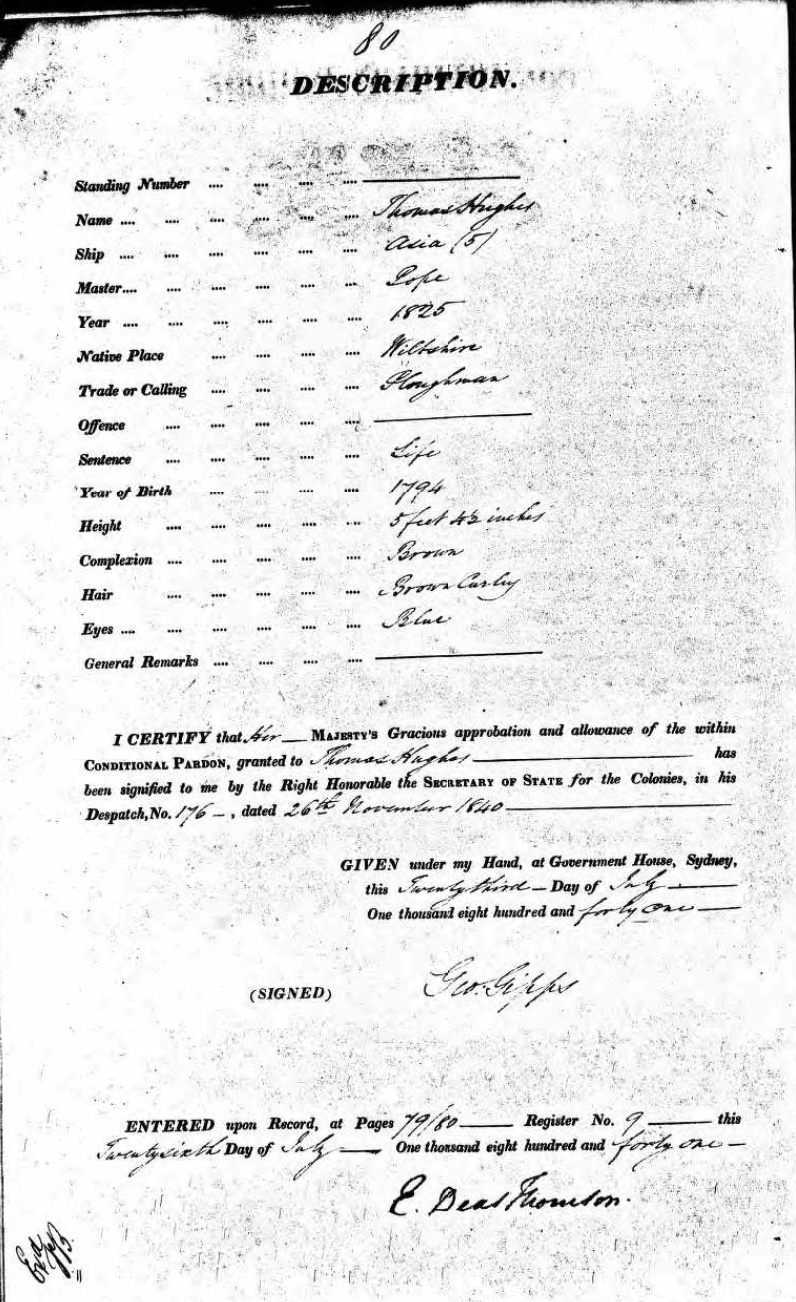 80
DESCRIPTION.
Standing Number .... .... .... ....
Name .... .... .... .... .... .... Thomas Hughes
Ship .... .... .... .... .... .... Asia (5)
Master.... .... .... .... .... .... Pope
Year .... .... .... .... .... .... 1825
Native Place .... .... .... .... Wiltshire
Trade or Calling .... .... .... .... Ploughman
Offence .... .... .... .... ....
Sentence .... .... .... .... .... Life
Year of Birth .... .... .... .... 1794
Height .... .... .... .... .... 5 feet 4½ inches
Complexion .... .... .... .... .... Brown
Hair .... .... .... .... .... Brown Curley
Eyes .... .... .... .... .... .... Blue
General Remarks .... .... .... ....
I CERTIFY that Her — MAJESTY'S Gracious approbation and allowance of the within
CONDITIONAL PARDON, granted to Thomas Hughes — has
been signified to me by the Right Honorable the SECRETARY OF STATE for the Colonies, in his
Despatch, No. 176 — , dated 26th November 1840 —
GIVEN under my Hand, at Government House, Sydney,
this Twenty third — Day of July —
One thousand eight hundred and forty one —
(SIGNED) Geo. Gipps
ENTERED upon Record, at Pages 79/80 — Register No. 9 — this
Twenty sixth Day of July — One thousand eight hundred and forty one —
E. Deas Thomson.